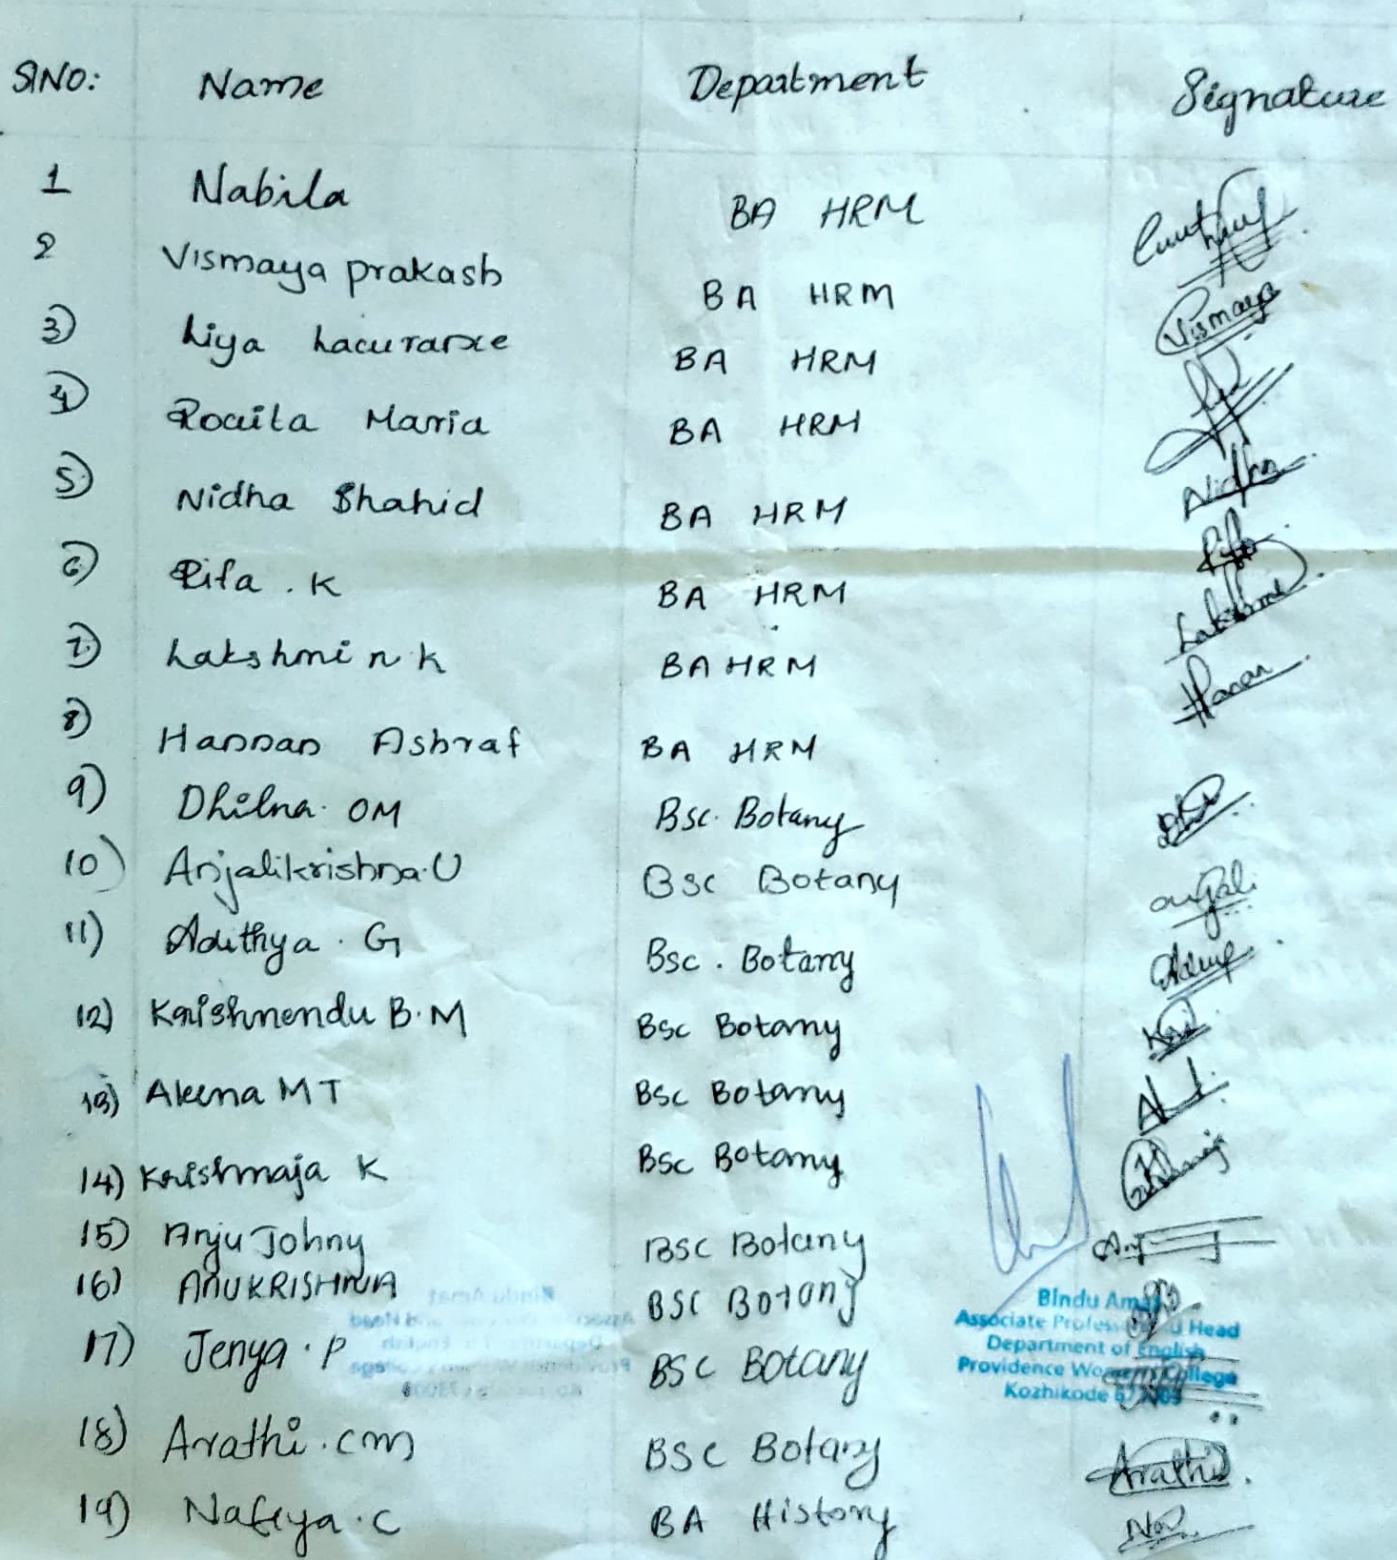 Sl.NO: Name Department Signature
1 Nabila BA HRM
2 Vismaya prakash BA HRM Vismaya
3) Liya Lacurarxe BA HRM
4) Roaita Maria BA HRM
5) Nidha Shahid BA HRM Nidha
6) Rifa . K BA HRM Rifa
7) Lakshmi n k BA HRM Lakshmi
8) Hannan Ashraf BA HRM Hanan
9) Dhilna. OM Bsc. Botany
10) Anjalikrishna.U Bsc Botany anjali
11) Adithya . G Bsc . Botany
12) Krishnendu B.M Bsc Botany
13) Aleena MT Bsc Botany
14) Krishmaja K Bsc Botany
15) Anju Johny BSC Botany
16) ANUKRISHNA BSC Botany
17) Jenya . P BSC Botany
Bindu Amat
Associate Professor and Head
Department of English
Providence Women's College
Kozhikode
18) Arathi . cm BSC Botany Arathi
19) Nafiya . C BA History